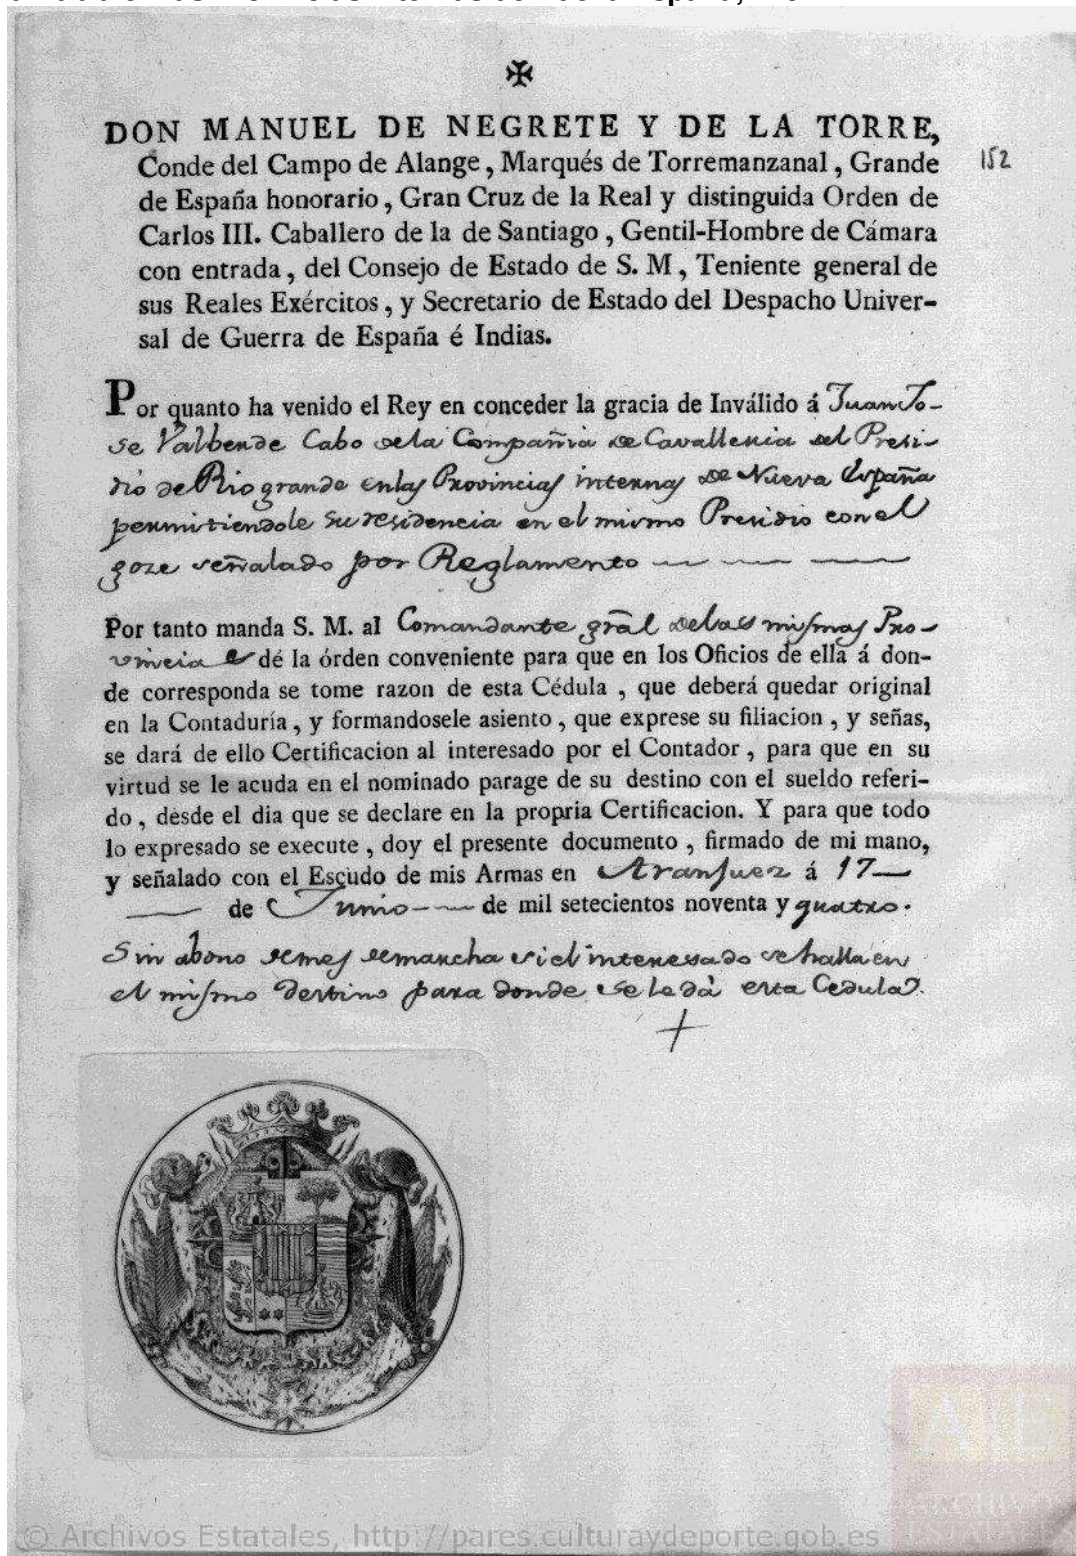 ✠
DON MANUEL DE NEGRETE Y DE LA TORRE,
Conde del Campo de Alange, Marqués de Torremanzanal, Grande
152
de España honorario, Gran Cruz de la Real y distinguida Orden de
Carlos III. Caballero de la de Santiago, Gentil-Hombre de Cámara
con entrada, del Consejo de Estado de S. M, Teniente general de
sus Reales Exércitos, y Secretario de Estado del Despacho Univer-
sal de Guerra de España é Indias.
Por quanto ha venido el Rey en conceder la gracia de Inválido á Juan Jo-
se Valverde Cabo dela Compañia de Cavalleria del Presi-
dio de Rio grande enlas Provincias internas de Nueva España
permitiendole su residencia en el mismo Presidio con el
goze señalado por Reglamento
Por tanto manda S. M. al Comandante grãl delas mismas Pro-
vincias dé la órden conveniente para que en los Oficios de ella á don-
de corresponda se tome razon de esta Cédula, que deberá quedar original
en la Contaduría, y formandosele asiento, que exprese su filiacion, y señas,
se dará de ello Certificacion al interesado por el Contador, para que en su
virtud se le acuda en el nominado parage de su destino con el sueldo referi-
do, desde el dia que se declare en la propria Certificacion. Y para que todo
lo expresado se execute, doy el presente documento, firmado de mi mano,
y señalado con el Escudo de mis Armas en Aranjuez á 17
de Junio de mil setecientos noventa y quatro.
Sin abono demes demarcha si el interesado se halla en
el mismo destino para donde se le dà esta Cedula.
© Archivos Estatales, http://pares.culturaydeporte.gob.es